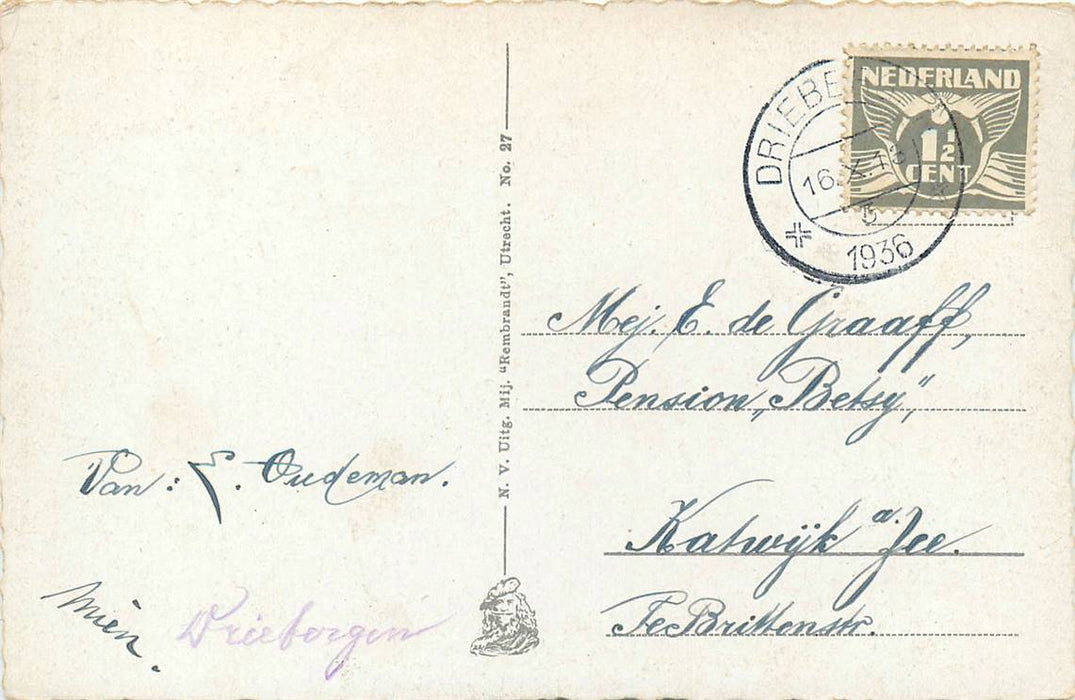 NEDERLAND
1½
CENT
DRIEBE
16.X.1
5
1936
Mej. E. de Graaff,
Pension „Betsy”,
Katwijk a. Zee.
TeBrittenstr.
Van: E. Oudeman.
Mien.
Driebergen
N. V. Uitg. Mij. “Rembrandt”, Utrecht. No. 27